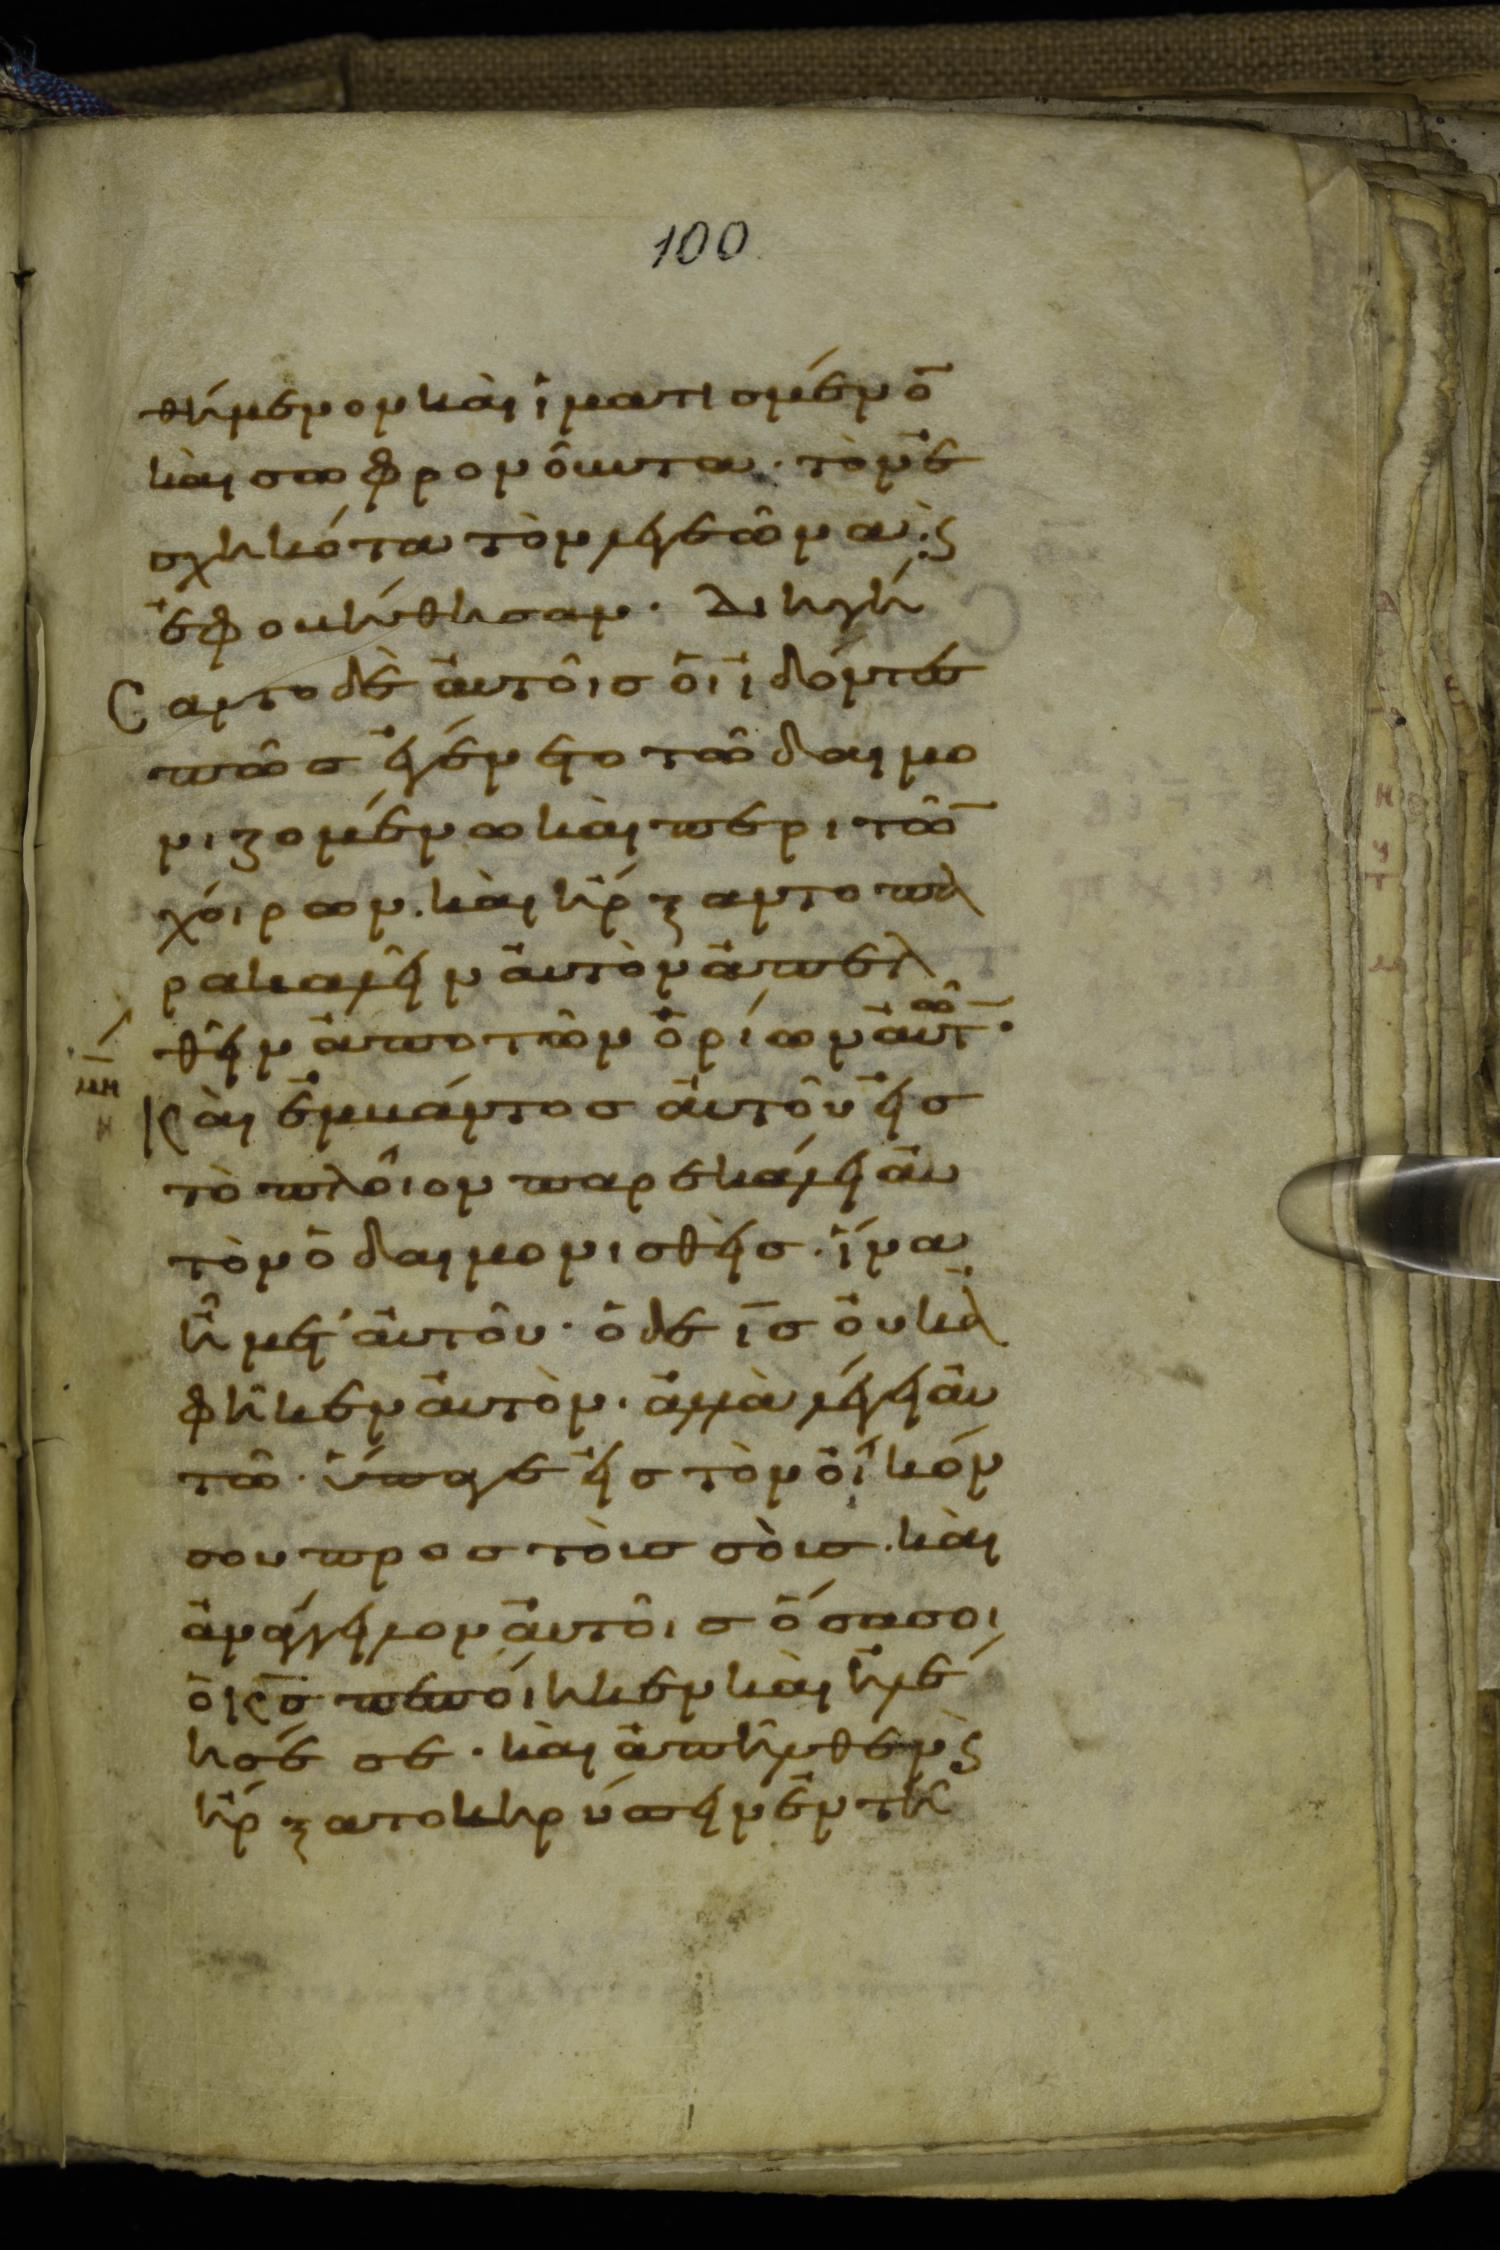 100
θήμενον καὶ ἱματισμένο̅
καὶ σωφρονοῦντα· τὸν ἐ
σχηκότα τὸν λεγεῶνα· ϗ
ἐφοβήθησαν· Διηγή
σαντο δὲ αὐτοῖσ οἱ ἰδόντες
πῶσ ἐγένετο τῶ δαιμο
νιζομένω καὶ περι τῶ̅
χοίρων. καὶ ἤρξαντο πα
ρακαλεῖν αὐτὸν ἀπελ
θεῖν ἀπο τῶν ὁρίων αὐτῶ̅·
μη
Καὶ ἐμβάντοσ αὐτοῦ εἰσ
τὸ πλοῖον παρεκάλει αὐ
τὸν ὁ δαιμονισθεὶσ. ἵνα
ἦ μετ' αὐτοῦ· ὁ δε ι̅σ οὐκ ἀ
φῆκεν αὐτὸν· ἀλλὰ λέγει αὐ
τῶ· ὕπαγε εἰσ τὸν οἶκόν
σου προσ τοὺσ σοὺσ. καὶ
ἀνάγγειλον αὐτοῖσ ὅσα σοι
ὁ κ̅σ πεποίηκεν καὶ ἠλέ
ησέ σε· καὶ ἀπῆλθεν ϗ
ἤρξατο κηρύσσειν ἐν τῆ